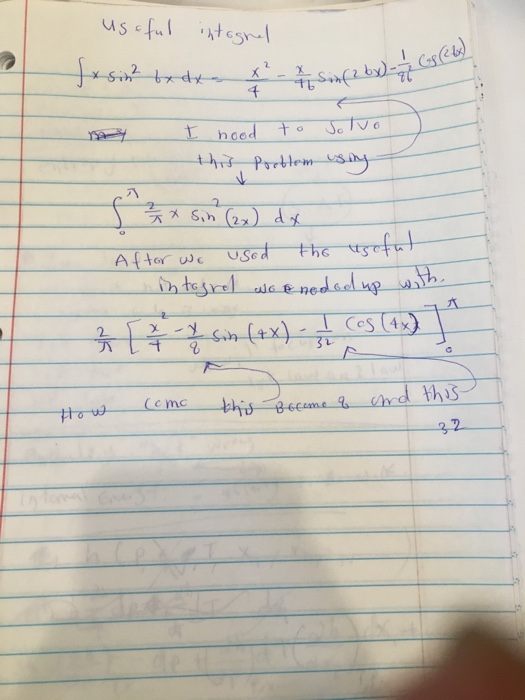 useful integral
∫ x sin² bx dx = x²/4 - x/4b sin(2bx) - 1/8b² cos(2bx)
I need to solve
this Problem using
∫₀^π 2/π x sin²(2x) dx
After we used the useful
integral we ended up with.
2/π [ x²/4 - x/8 sin(4x) - 1/32 cos(4x) ]₀^π
How come this become 8 and this
32